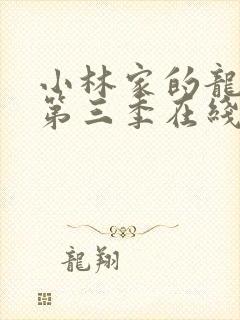 小林家的龍
第三季在綫
龍翔